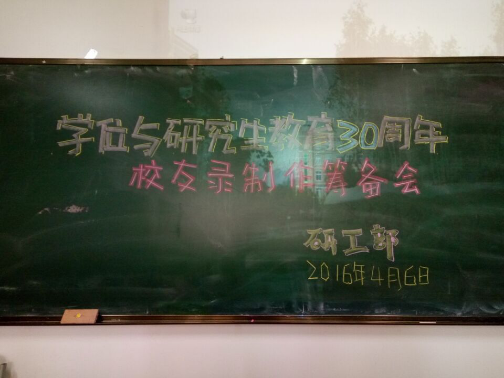 学位与研究生教育30周年
校友录制作筹备会
研工部
2016年4月6日